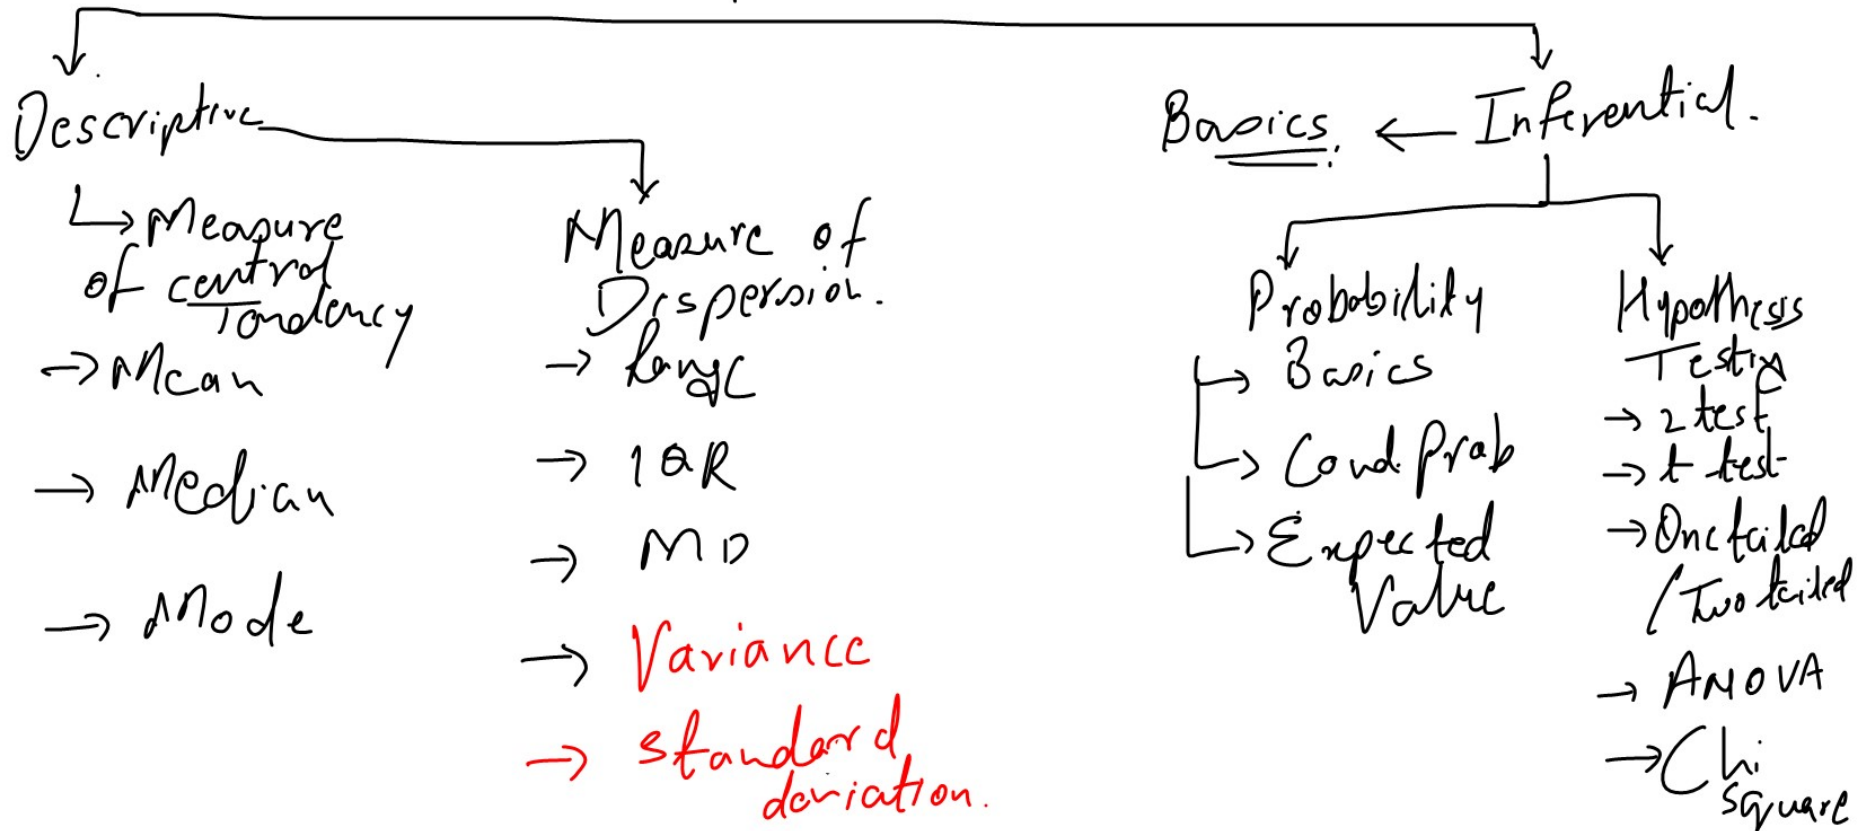 Descriptive
Basics. ← Inferential.
↳ Measure
of central
Tendency
→ Mean
→ Median
→ Mode
Measure of
Dispersion.
→ Range
→ IQR
→ MD
→ Variance
→ Standard
deviation.
Probability
→ Basics
→ Cond. Prob
→ Expected
Value
Hypothesis
Testing
→ z test
→ t-test
→ One tailed
/ Two tailed
→ ANOVA
→ Chi
square